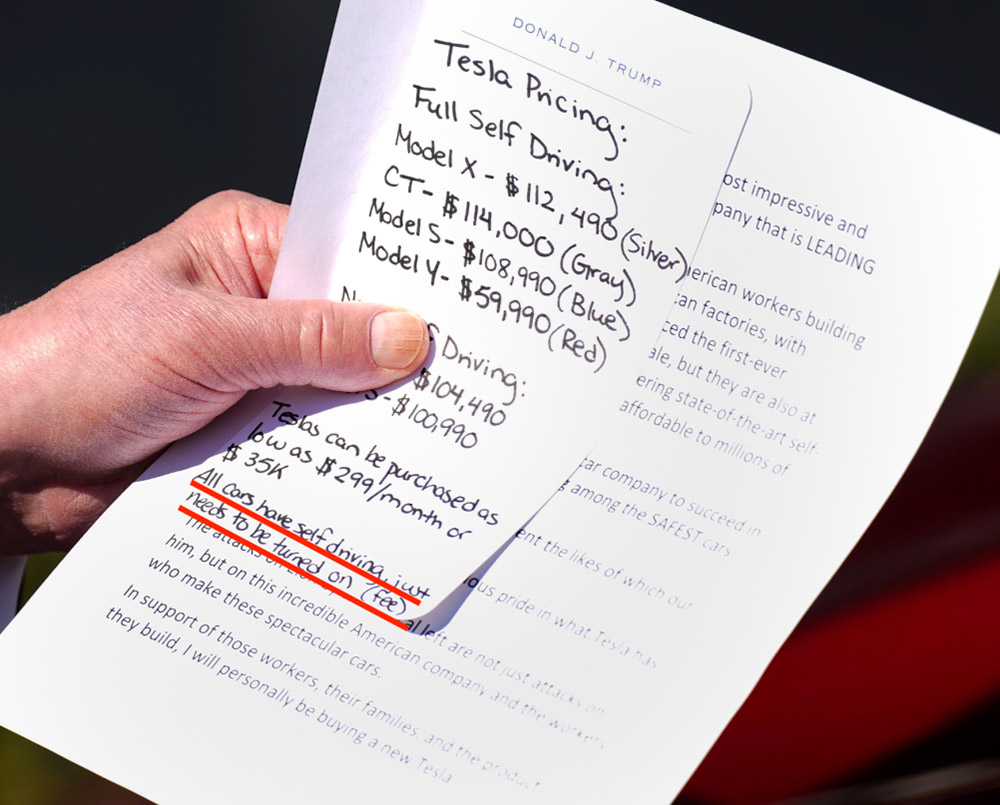 DONALD J. TRUMP
Tesla Pricing:
Full Self Driving:
Model X - $112,490 (Silver)
CT- $114,000 (Gray)
Model S- $108,990 (Blue)
Model Y- $59,990 (Red)
Driving:
$104,490
- $100,990
Teslas can be purchased as
low as $299/month or
$35K
All cars have self driving, just
needs to be turned on (Fee)
ost impressive and
pany that is LEADING
erican workers building
can factories, with
ced the first-ever
ale, but they are also at
ering state-of-the-art self-
affordable to millions of
car company to succeed in
g among the SAFEST cars
ent the likes of which our
ous pride in what Tesla has
The attacks on al left are not just attacks on
him, but on this incredible American company and the workers
who make these spectacular cars.
In support of those workers, their families, and the product
they build, I will personally be buying a new Tesla